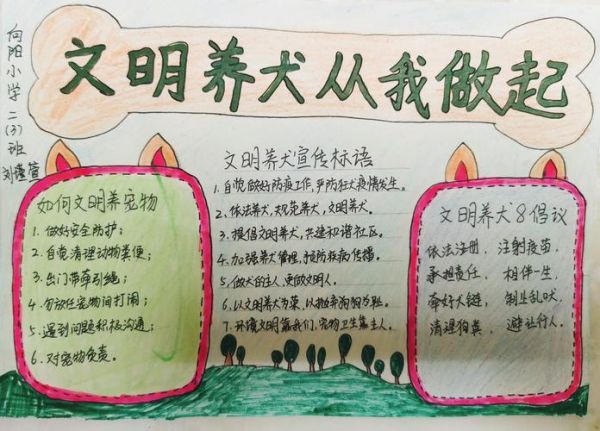 文明养犬从我做起
向阳小学二(3)班
刘瑾萱
如何文明养宠物
1. 做好安全防护；
2. 自觉清理动物粪便；
3. 出门带牵引绳；
4. 勿放任宠物间打闹；
5. 遇到问题积极沟通；
6. 对宠物负责。
文明养犬宣传标语
1. 自觉做好防疫工作，严防狂犬疫情发生。
2. 依法养犬，规范养犬，文明养犬。
3. 提倡文明养犬，共建和谐社区。
4. 加强养犬管理，预防疾病传播。
5. 做犬的主人，更做文明人。
6. 以文明养犬为荣，以抛弃狗狗为耻。
7. 环境文明靠我们，宠物卫生靠主人。
文明养犬8倡议
依法注册， 注射疫苗，
承担责任， 相伴一生，
牵好犬链， 制止乱吠，
清理狗粪， 避让行人。